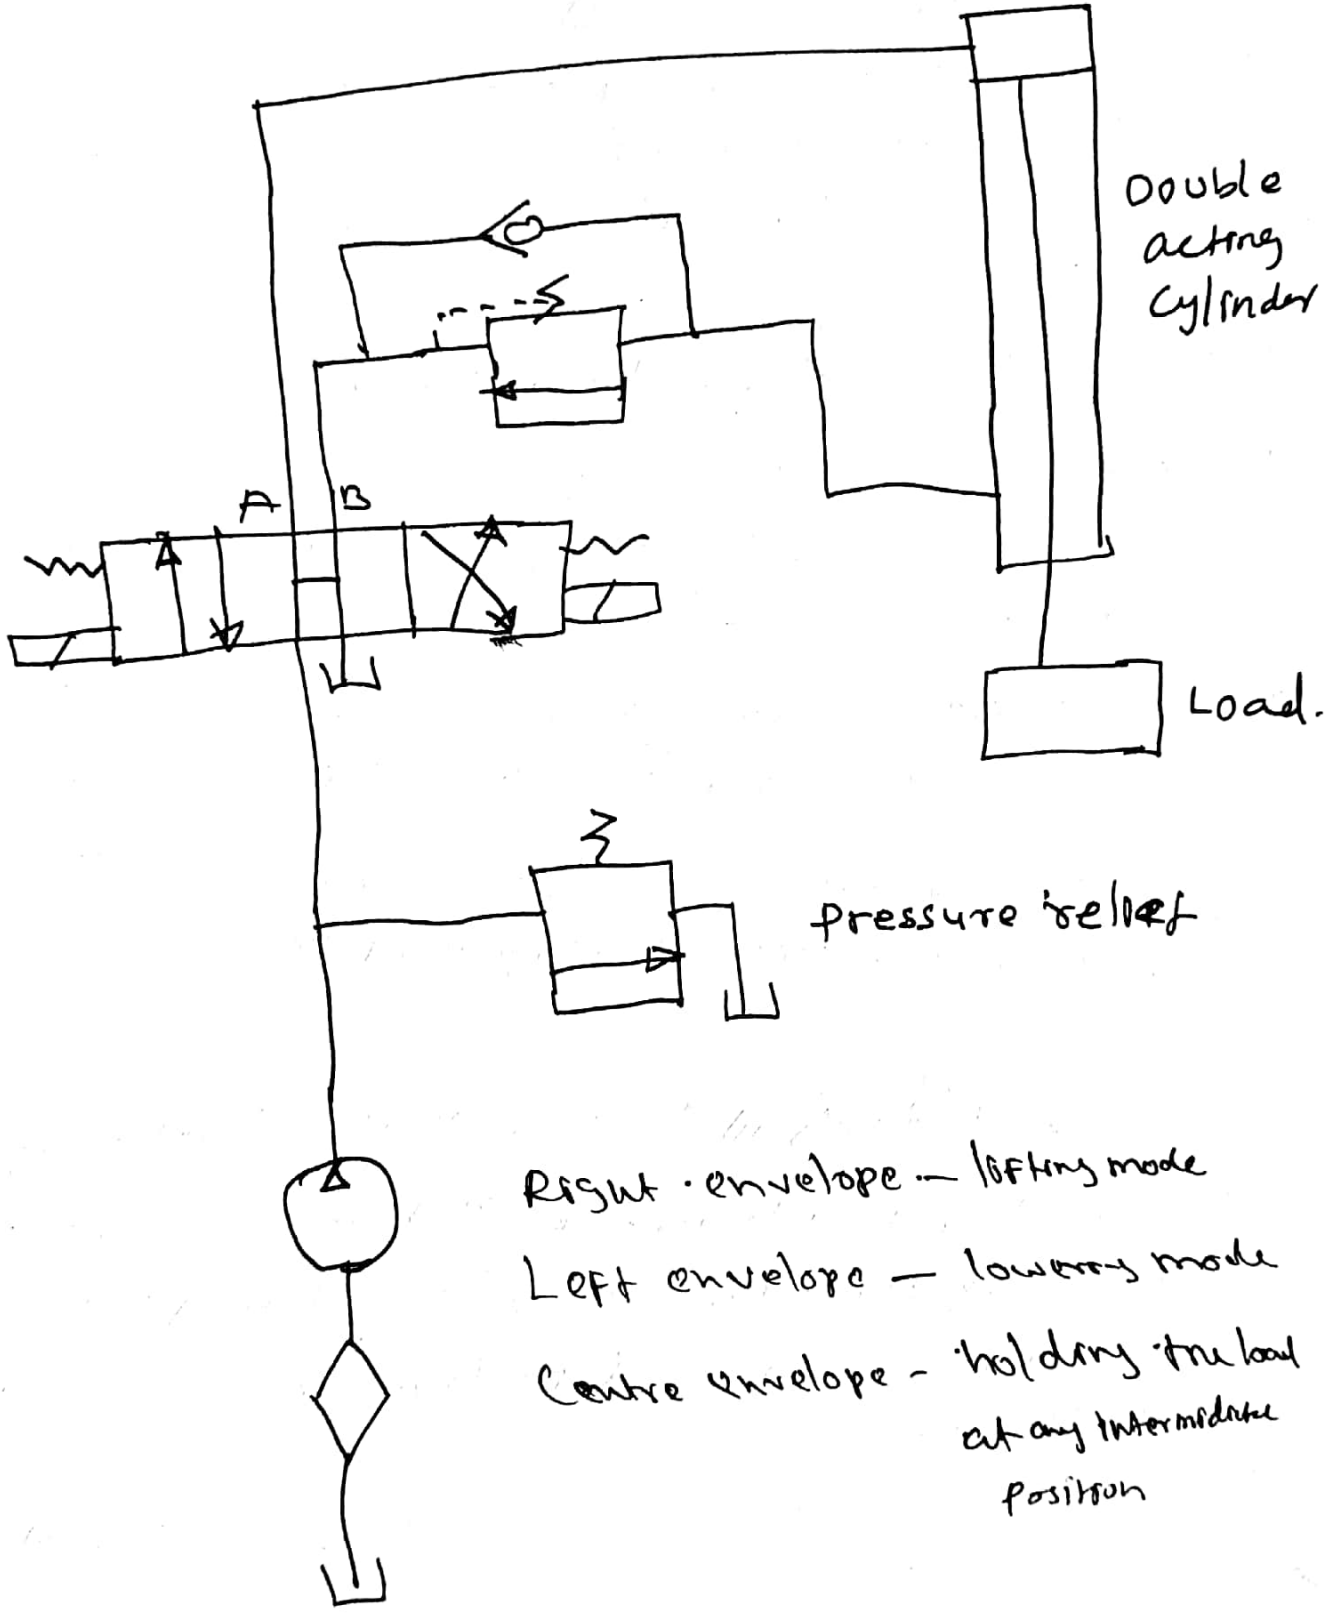 Double
acting
cylinder
A
B
Load.
Pressure relief
Right envelope - lifting mode
Left envelope - lowering mode
Centre envelope - holding the load
at any intermidiate
position